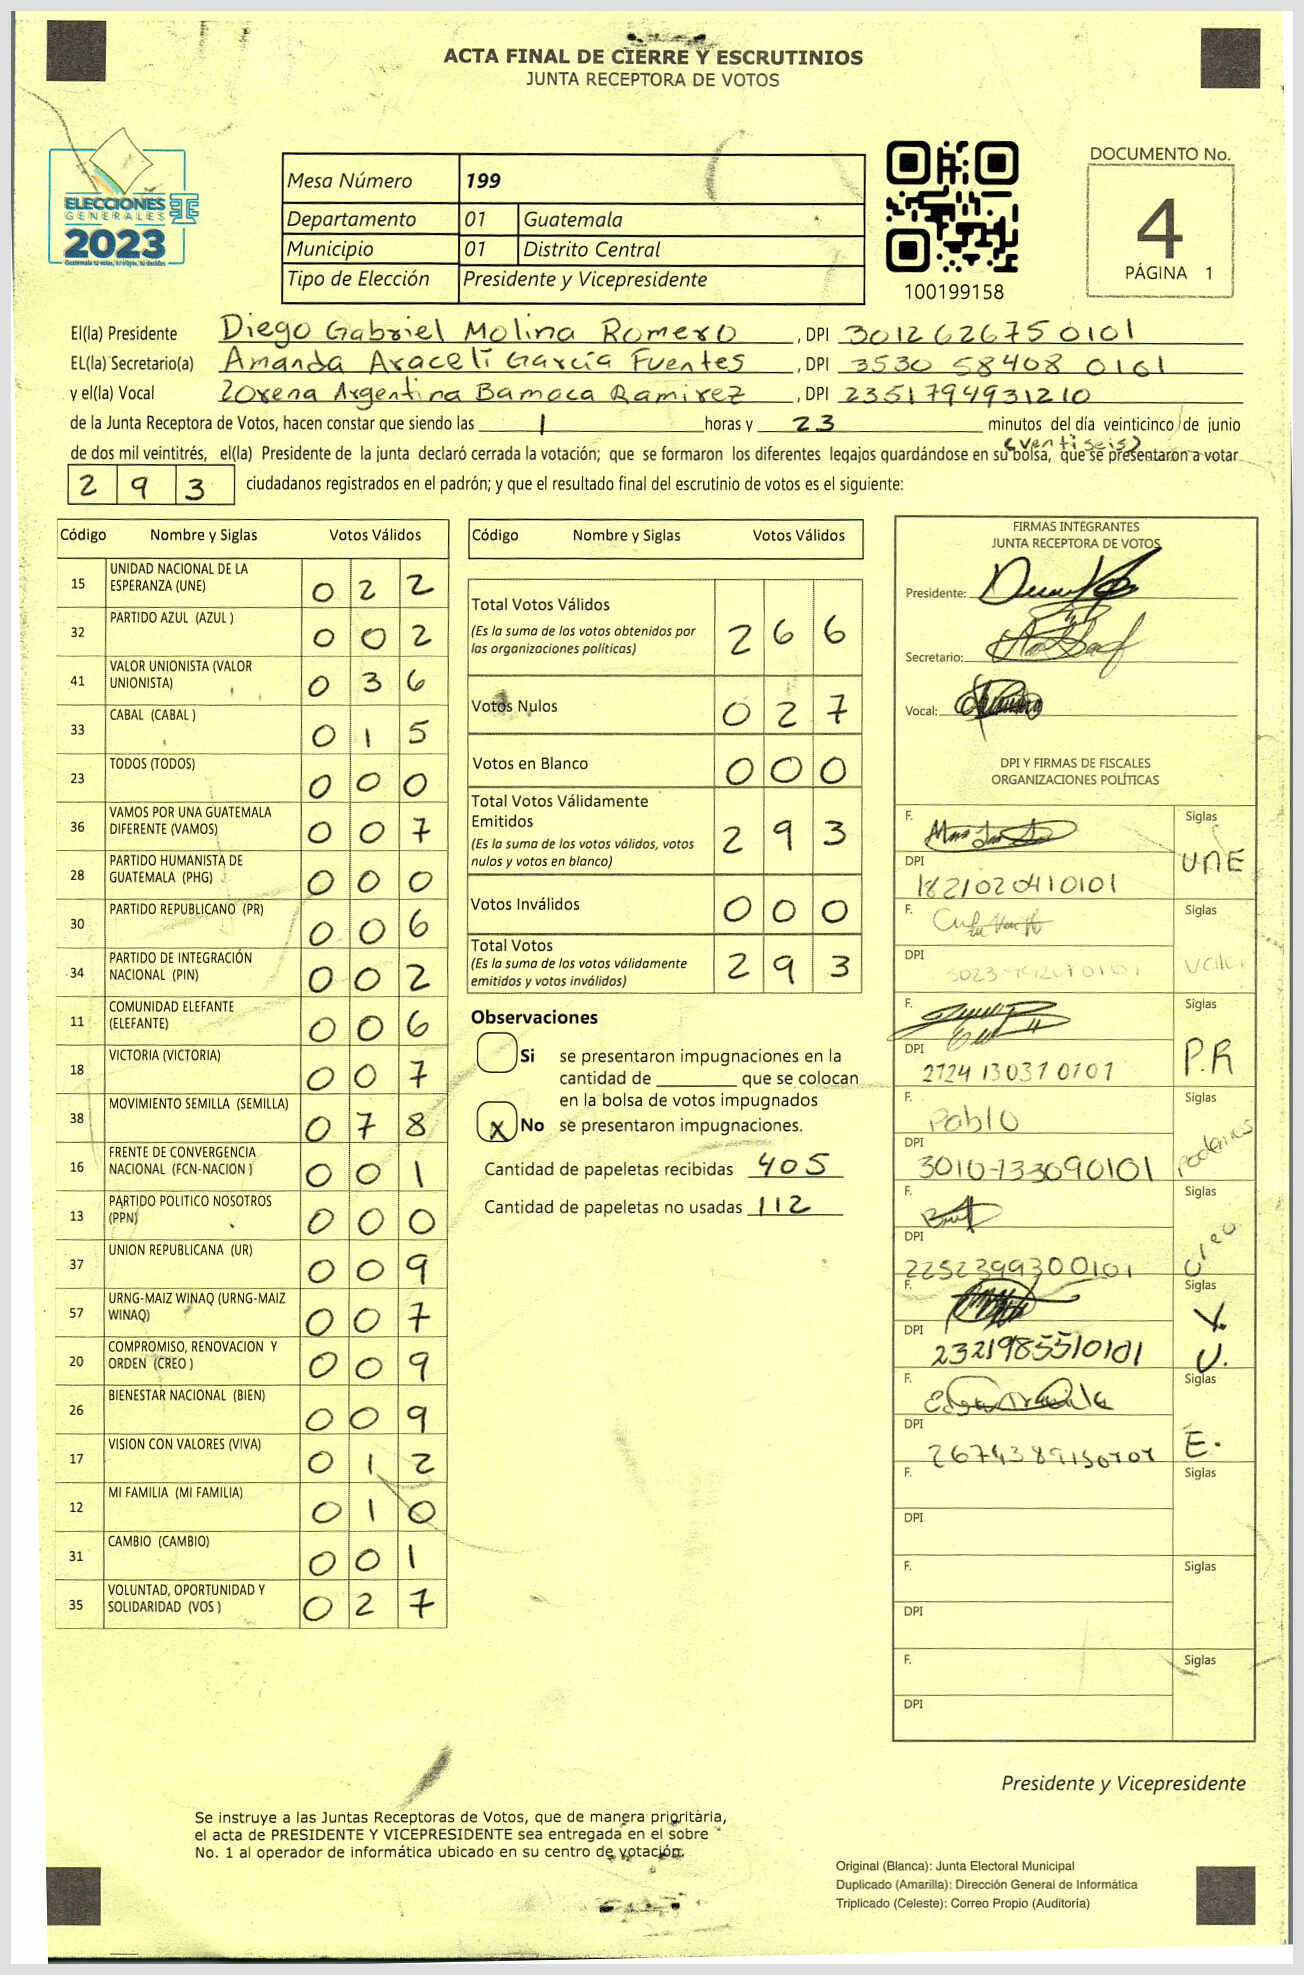 ACTA FINAL DE CIERRE Y ESCRUTINIOS
JUNTA RECEPTORA DE VOTOS
ELECCIONES
GENERALES
2023
Mesa Número 199
Departamento 01 Guatemala
Municipio 01 Distrito Central
Tipo de Elección Presidente y Vicepresidente
100199158
DOCUMENTO No.
4
PÁGINA 1
El(la) Presidente Diego Gabriel Molina Romero , DPI 3012626750101
EL(la) Secretario(a) Amanda Araceli García Fuentes , DPI 3530 58408 0101
y el(la) Vocal Lorena Argentina Bamaca Ramirez , DPI 2351794931210
de la Junta Receptora de Votos, hacen constar que siendo las 1 horas y 23 minutos del día veinticinco de junio
(ventiseis)
de dos mil veintitrés, el(la) Presidente de la junta declaró cerrada la votación; que se formaron los diferentes legajos guardándose en su bolsa, que se presentaron a votar
293 ciudadanos registrados en el padrón; y que el resultado final del escrutinio de votos es el siguiente:
Código Nombre y Siglas Votos Válidos
15 UNIDAD NACIONAL DE LA ESPERANZA (UNE) 022
32 PARTIDO AZUL (AZUL ) 002
41 VALOR UNIONISTA (VALOR UNIONISTA) 036
33 CABAL (CABAL ) 015
23 TODOS (TODOS) 000
36 VAMOS POR UNA GUATEMALA DIFERENTE (VAMOS) 007
28 PARTIDO HUMANISTA DE GUATEMALA (PHG) 000
30 PARTIDO REPUBLICANO (PR) 006
34 PARTIDO DE INTEGRACIÓN NACIONAL (PIN) 002
11 COMUNIDAD ELEFANTE (ELEFANTE) 006
18 VICTORIA (VICTORIA) 007
38 MOVIMIENTO SEMILLA (SEMILLA) 078
16 FRENTE DE CONVERGENCIA NACIONAL (FCN-NACION ) 001
13 PARTIDO POLITICO NOSOTROS (PPN) 000
37 UNION REPUBLICANA (UR) 009
57 URNG-MAIZ WINAQ (URNG-MAIZ WINAQ) 007
20 COMPROMISO, RENOVACION Y ORDEN (CREO ) 009
26 BIENESTAR NACIONAL (BIEN) 009
17 VISION CON VALORES (VIVA) 012
12 MI FAMILIA (MI FAMILIA) 010
31 CAMBIO (CAMBIO) 001
35 VOLUNTAD, OPORTUNIDAD Y SOLIDARIDAD (VOS ) 027
Código Nombre y Siglas Votos Válidos
Total Votos Válidos 266
(Es la suma de los votos obtenidos por
las organizaciones políticas)
Votos Nulos 027
Votos en Blanco 000
Total Votos Válidamente
Emitidos 293
(Es la suma de los votos válidos, votos
nulos y votos en blanco)
Votos Inválidos 000
Total Votos 293
(Es la suma de los votos válidamente
emitidos y votos inválidos)
Observaciones
Si se presentaron impugnaciones en la
cantidad de ________ que se colocan
en la bolsa de votos impugnados
X No se presentaron impugnaciones.
Cantidad de papeletas recibidas 405
Cantidad de papeletas no usadas 112
FIRMAS INTEGRANTES
JUNTA RECEPTORA DE VOTOS
Presidente:
Secretario:
Vocal:
DPI Y FIRMAS DE FISCALES
ORGANIZACIONES POLÍTICAS
F. Siglas
UNE
DPI
1821020410101
F. Siglas
DPI
Valor
F. Siglas
P.R
DPI
2724 13031 0101
F. Siglas
Pablo
podemos
DPI
3010733090101
F. Siglas
Creo
DPI
2252399300101
F. Siglas
V.
U.
DPI
2321985510101
F. Siglas
E.
DPI
F. Siglas
DPI
F. Siglas
DPI
F. Siglas
DPI
Presidente y Vicepresidente
Se instruye a las Juntas Receptoras de Votos, que de manera prioritaria,
el acta de PRESIDENTE Y VICEPRESIDENTE sea entregada en el sobre
No. 1 al operador de informática ubicado en su centro de votación.
Original (Blanca): Junta Electoral Municipal
Duplicado (Amarilla): Dirección General de Informática
Triplicado (Celeste): Correo Propio (Auditoría)